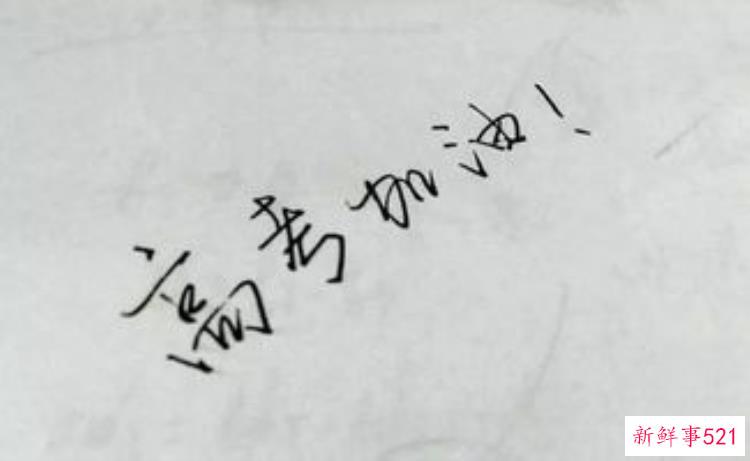 高考加油！
新鲜事521